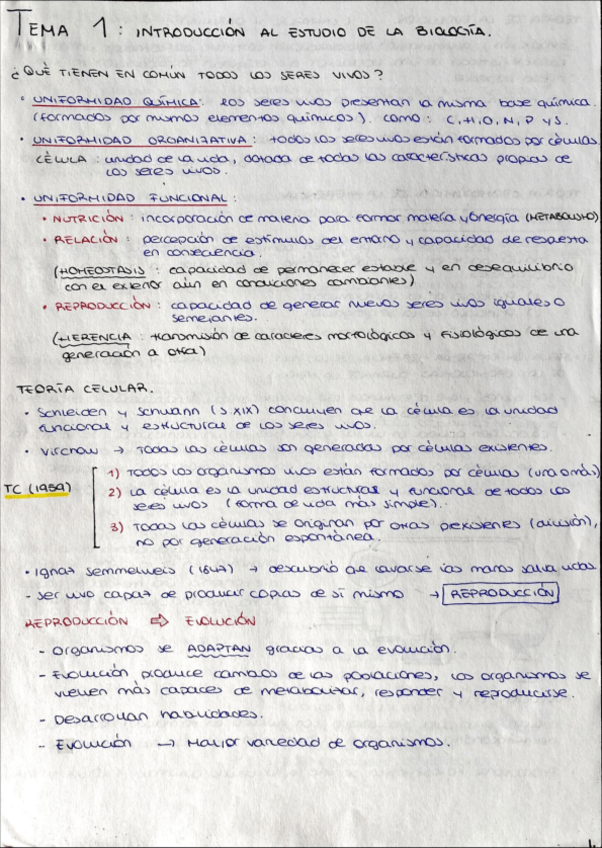 TEMA 1: INTRODUCCIÓN AL ESTUDIO DE LA BIOLOGÍA.
¿QUÉ TIENEN EN COMÚN TODOS LOS SERES VIVOS?
• UNIFORMIDAD QUÍMICA: Los seres vivos presentan la misma base química.
(formados por mismos elementos químicos). como: C, H, O, N, P y S.
• UNIFORMIDAD ORGANIZATIVA: todos los seres vivos están formados por células.
CÉLULA: unidad de la vida, dotada de todas las características propias de
los seres vivos.
• UNIFORMIDAD FUNCIONAL:
• NUTRICIÓN: incorporación de materia para formar materia y energía (METABOLISMO)
• RELACIÓN: percepción de estímulos del entorno y capacidad de respuesta
en consecuencia.
(HOMEOSTASIS: capacidad de permanecer estable y en desequilibrio
con el exterior aún en condiciones cambiantes)
• REPRODUCCIÓN: capacidad de generar nuevos seres vivos iguales o
semejantes.
(HERENCIA: transmisión de caracteres morfológicos y fisiológicos de una
generación a otra)
TEORÍA CELULAR.
• Schleiden y Schwann (S XIX) concluyen que la célula es la unidad
funcional y estructural de los seres vivos.
• Virchow → Todas las células son generadas por células existentes.
TC (1959)
1) Todos los organismos vivos están formados por células (una o más)
2) La célula es la unidad estructural y funcional de todos los
seres vivos (forma de vida más simple).
3) Todas las células se originan por otras preexistentes (división),
no por generación espontánea.
• Ignaz Semmelweis (1847) → descubrió que lavarse las manos salva vidas
- Ser vivo capaz de producir copias de sí mismo → REPRODUCCIÓN
REPRODUCCIÓN ⇨ EVOLUCIÓN
- Organismos se ADAPTAN gracias a la evolución.
- Evolución produce cambios de las poblaciones, los organismos se
vuelven más capaces de metabolizar, responder y reproducirse.
- Desarrollan habilidades.
- Evolución → Mayor variedad de organismos.